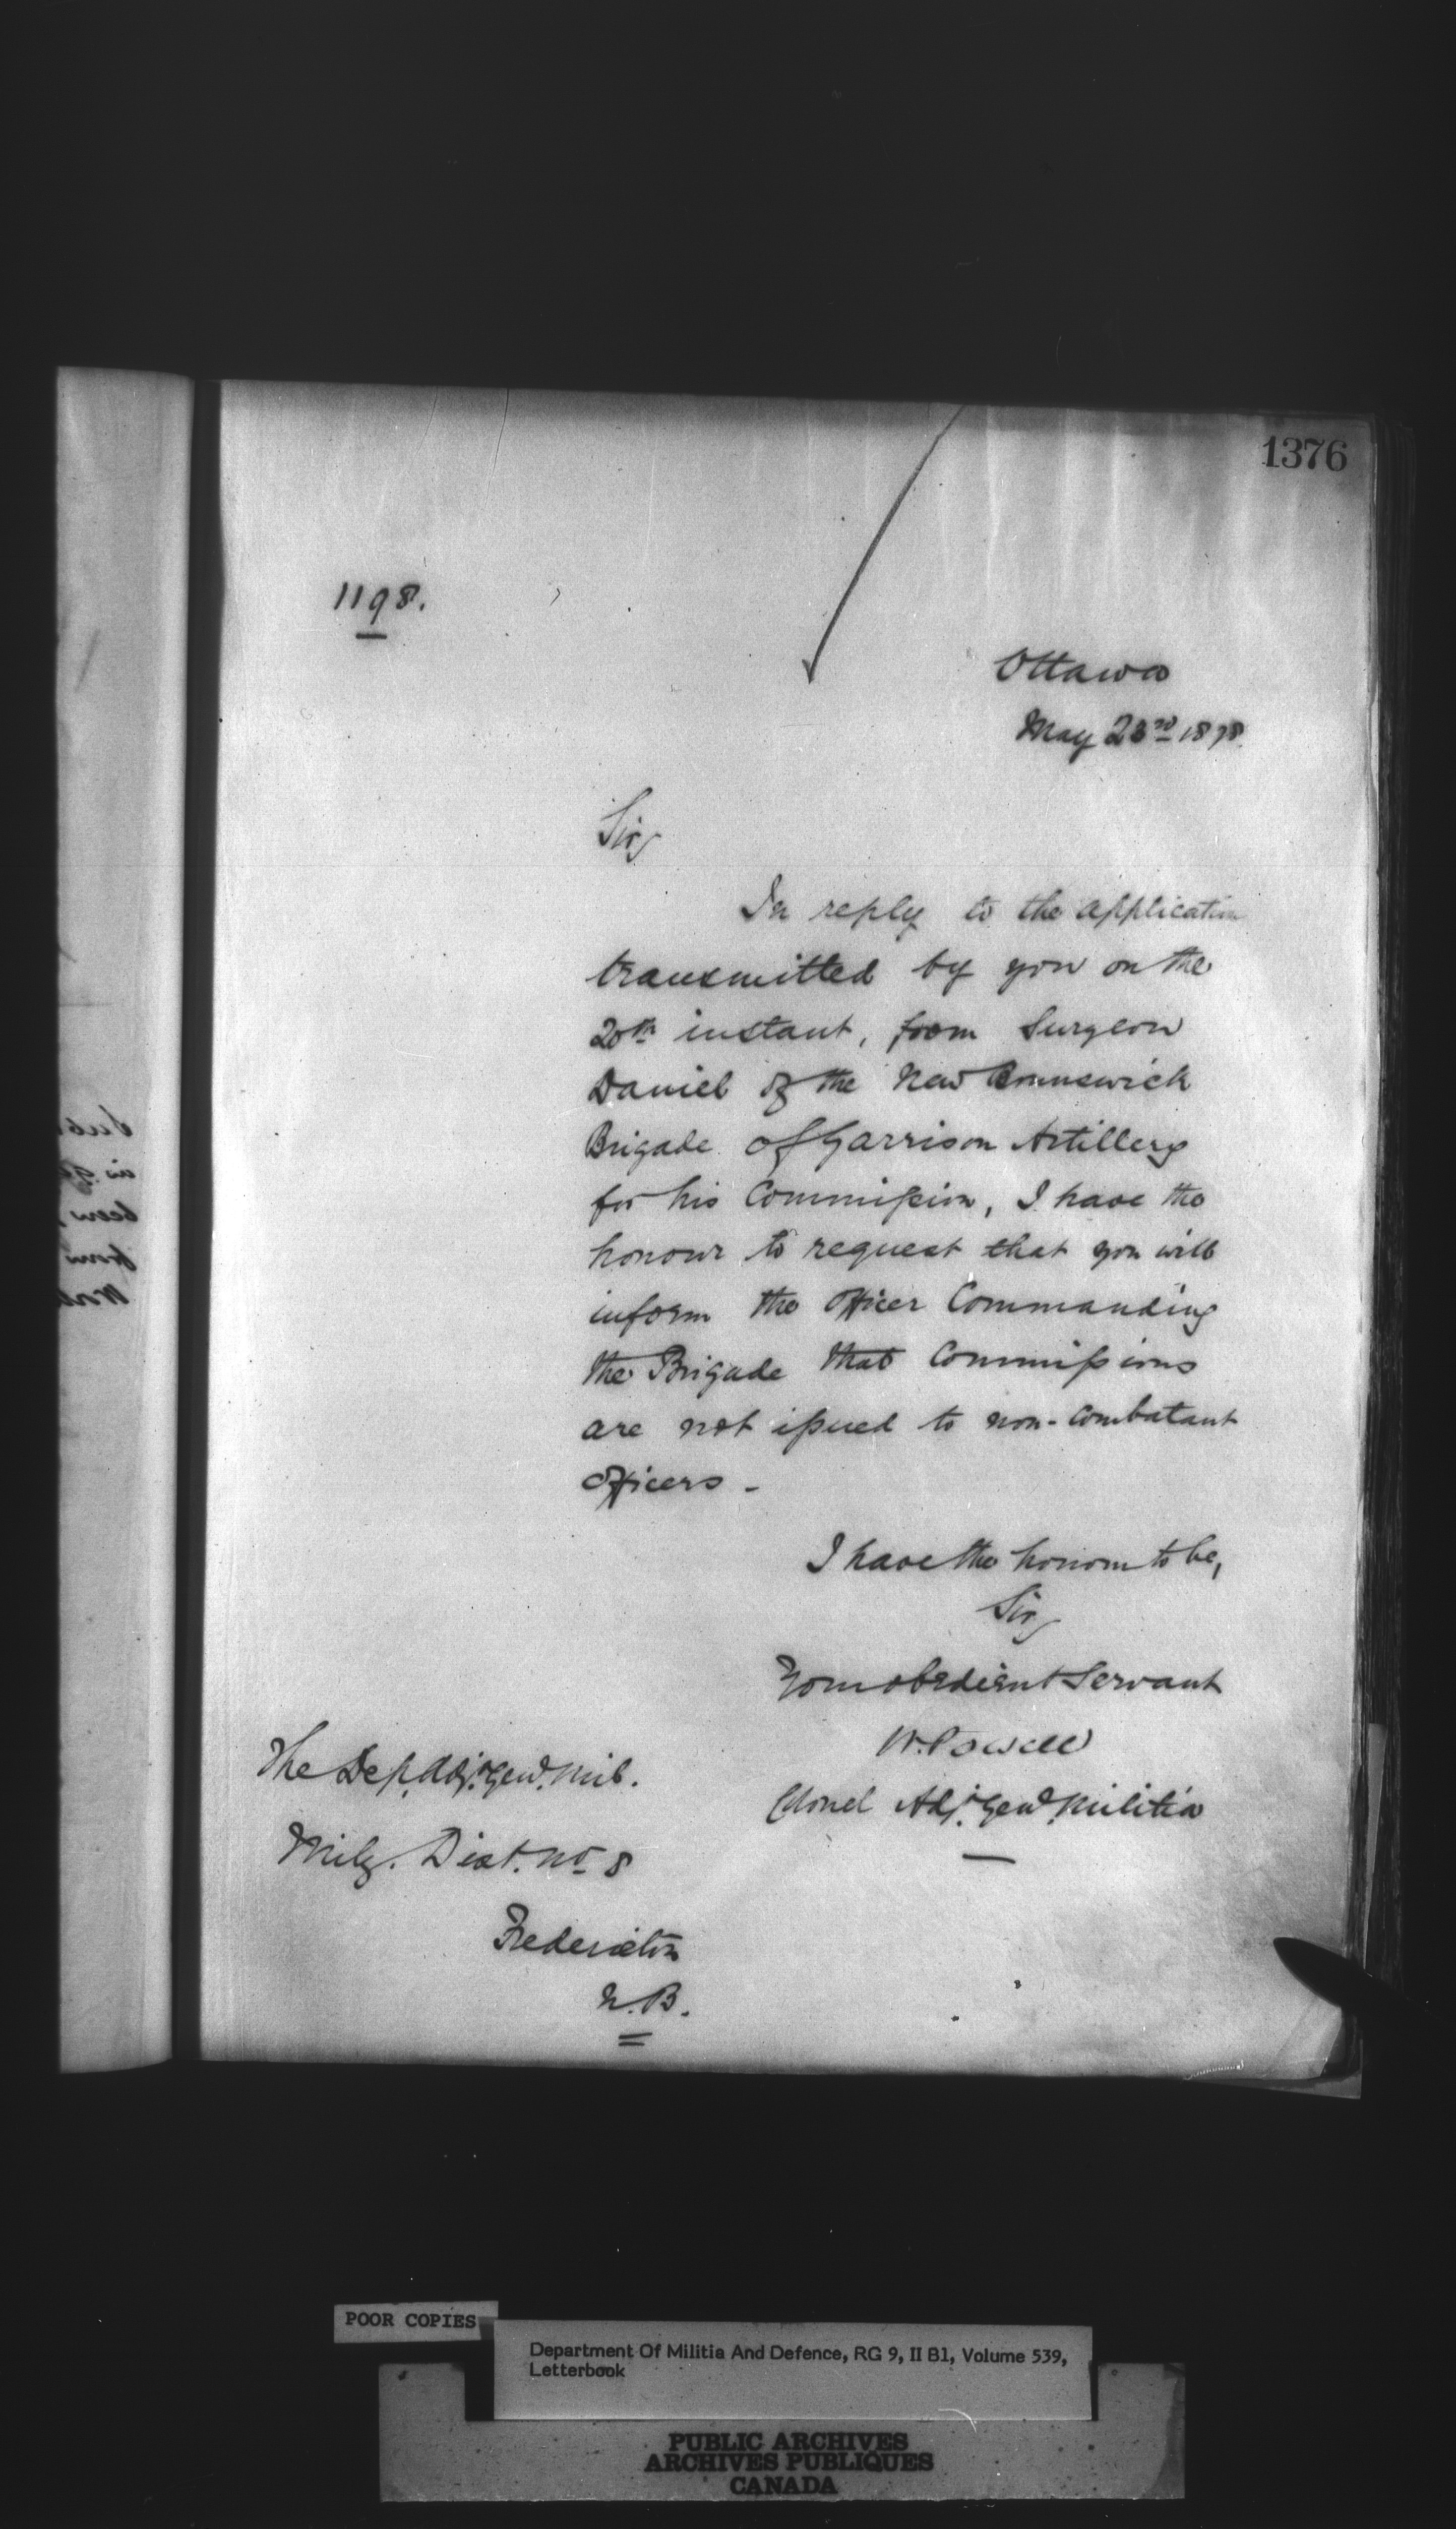 1376
1198.
Ottawa
May 23rd 1878.
Sir,
In reply to the application
transmitted by you on the
20th instant, from Surgeon
Daniel of the New Brunswick
Brigade of Garrison Artillery
for his Commission, I have the
honour to request that you will
inform the Officer Commanding
the Brigade that Commissions
are not issued to non-combatant
Officers -
I have the honour to be,
Sir,
Your obedient Servant
W. Powell
Colonel Adjt. Genl. Militia
The Dep. Adjt. Genl. Mil.
Mily. Dist. No 8
Fredericton
N.B.
POOR COPIES
Department Of Militia And Defence, RG 9, II B1, Volume 539,
Letterbook
PUBLIC ARCHIVES
ARCHIVES PUBLIQUES
CANADA